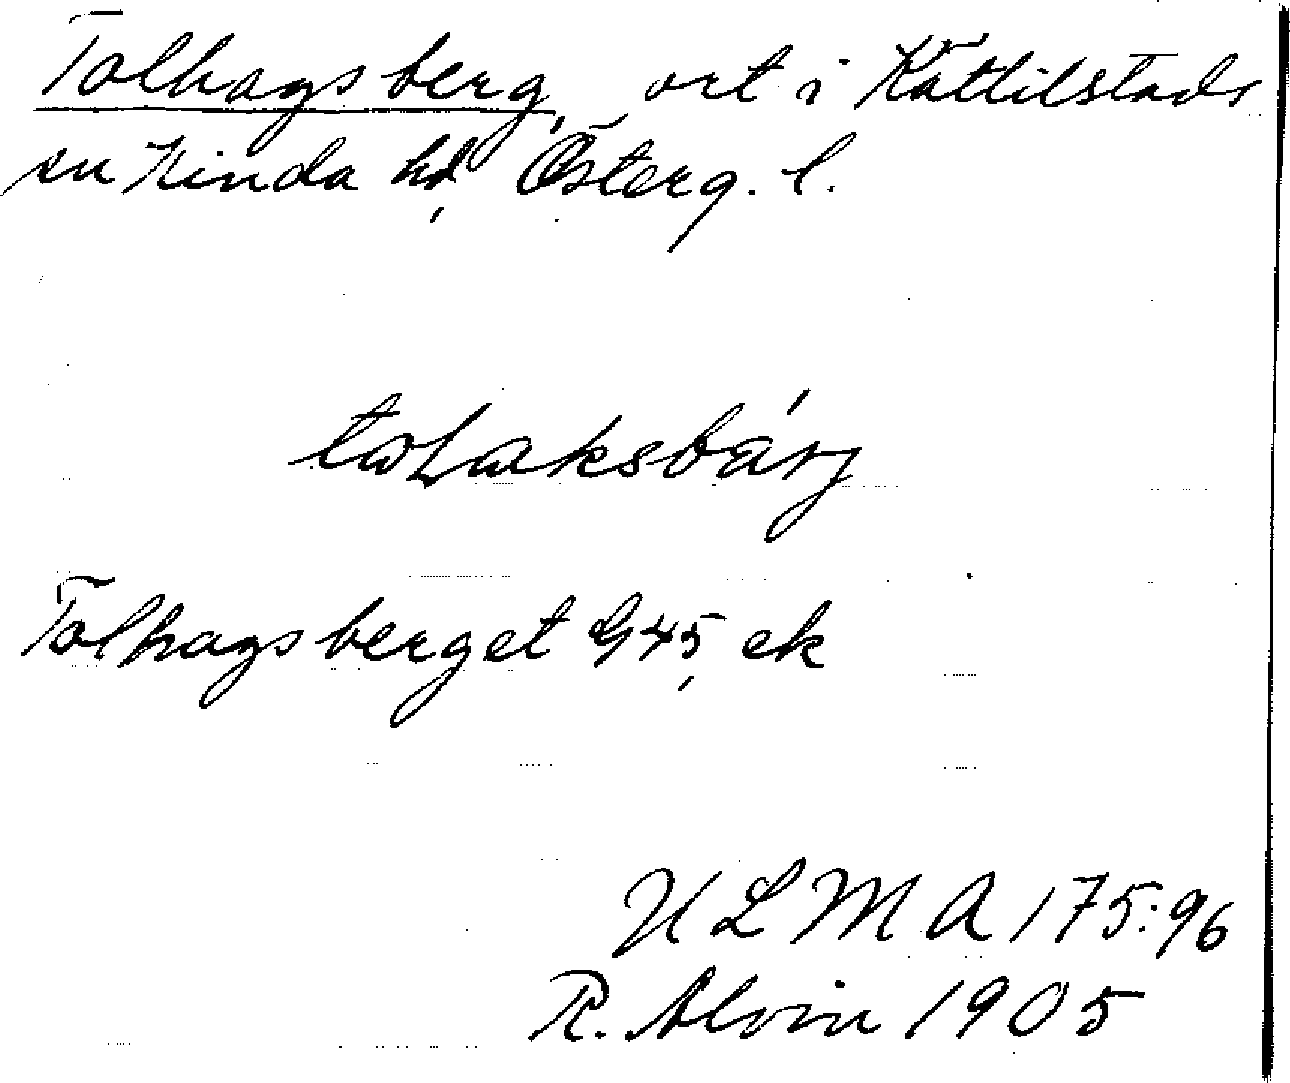 Tolhagsberg, ort i Kättilstads
sn Kinda hd, Österg. l.
Tolhagsberget G45, ek
ULMA 175:96
R. Alvin 1905